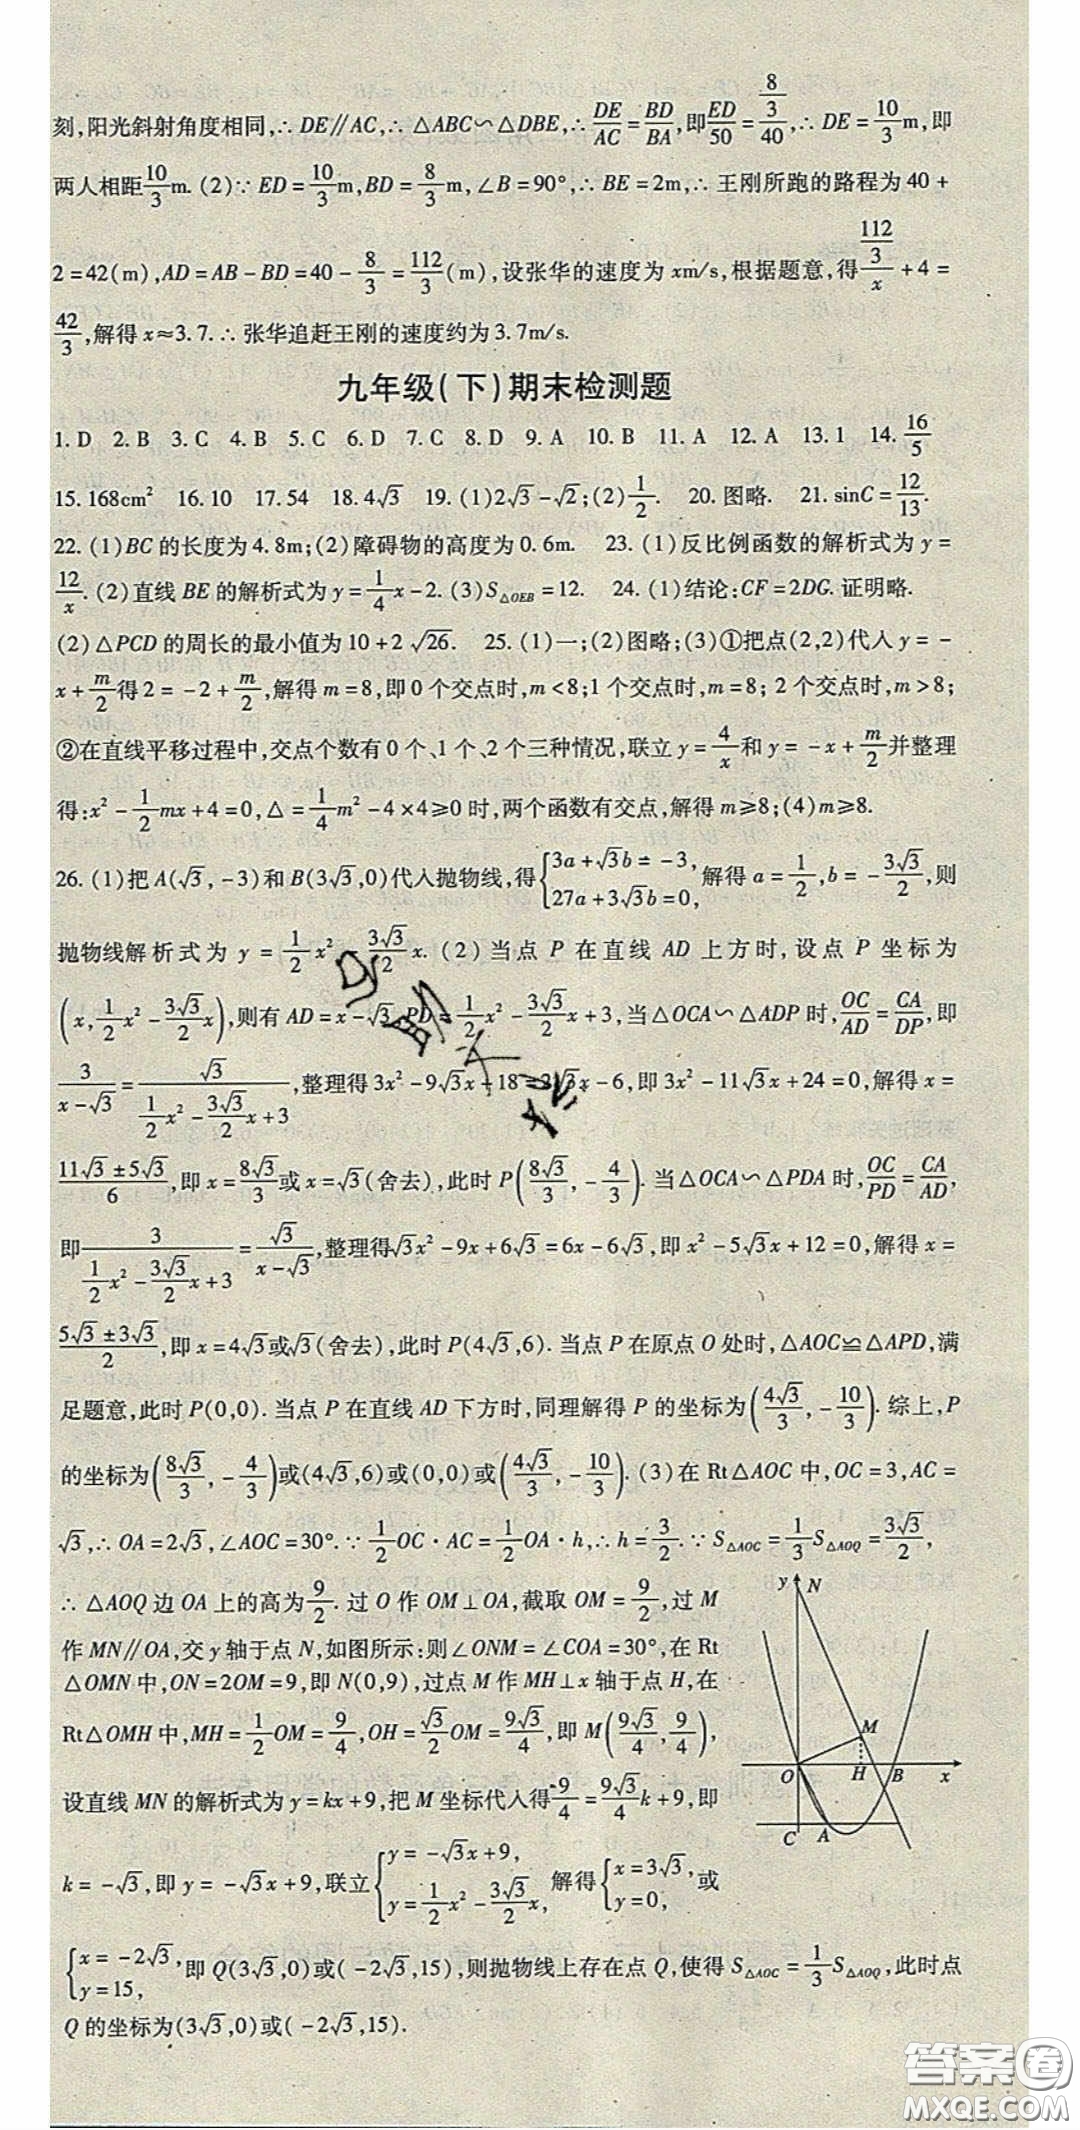 刻,阳光斜射角度相同,∴DE∥AC,∴△ABC∽△DBE,∴DE/AC=BD/BA,即ED/50=(8/3)/40,∴DE=10/3m,即
两人相距10/3m.(2)∵ED=10/3m,BD=8/3m,∠B=90°,∴BE=2m,∴王刚所跑的路程为40+
2=42(m),AD=AB-BD=40-8/3=112/3(m),设张华的速度为xm/s,根据题意,得(112/3)/x+4=
42/3,解得x≈3.7.∴张华追赶王刚的速度约为3.7m/s.
九年级(下)期末检测题
1.D 2.B 3.C 4.B 5.C 6.D 7.C 8.D 9.A 10.B 11.A 12.A 13.1 14.16/5
15.168cm² 16.10 17.54 18.4√3 19.(1)2√3-√2;(2)1/2. 20.图略. 21.sinC=12/13.
22.(1)BC的长度为4.8m;(2)障碍物的高度为0.6m. 23.(1)反比例函数的解析式为y=
12/x.(2)直线BE的解析式为y=1/4x-2.(3)S△OEB=12. 24.(1)结论:CF=2DG.证明略.
(2)△PCD的周长的最小值为10+2√26. 25.(1)一;(2)图略;(3)①把点(2,2)代入y=-
x+m/2得2=-2+m/2,解得m=8,即0个交点时,m<8;1个交点时,m=8;2个交点时,m>8;
②在直线平移过程中,交点个数有0个、1个、2个三种情况,联立y=4/x和y=-x+m/2并整理
得:x²-1/2mx+4=0,△=1/4m²-4×4≥0时,两个函数有交点,解得m≥8;(4)m≥8.
26.(1)把A(√3,-3)和B(3√3,0)代入抛物线,得{3a+√3b=-3, 27a+3√3b=0,解得a=1/2,b=-3√3/2,则
抛物线解析式为y=1/2x²-3√3/2x.(2)当点P在直线AD上方时,设点P坐标为
(x,1/2x²-3√3/2x),则有AD=x-√3,PD=1/2x²-3√3/2x+3,当△OCA∽△ADP时,OC/AD=CA/DP,即
3/(x-√3)=√3/(1/2x²-3√3/2x+3),整理得3x²-9√3x+18=2√3x-6,即3x²-11√3x+24=0,解得x=
(11√3±5√3)/6,即x=8√3/3或x=√3(舍去),此时P(8√3/3,-4/3).当△OCA∽△PDA时,OC/PD=CA/AD,
即3/(1/2x²-3√3/2x+3)=√3/(x-√3),整理得√3x²-9x+6√3=6x-6√3,即x²-5√3x+12=0,解得x=
(5√3±3√3)/2,即x=4√3或√3(舍去),此时P(4√3,6).当点P在原点O处时,△AOC≌△APD,满
足题意,此时P(0,0).当点P在直线AD下方时,同理解得P的坐标为(4√3/3,-10/3).综上,P
的坐标为(8√3/3,-4/3)或(4√3,6)或(0,0)或(4√3/3,-10/3).(3)在Rt△AOC中,OC=3,AC=
√3,∴OA=2√3,∠AOC=30°.∵1/2OC·AC=1/2OA·h,∴h=3/2.∵S△AOC=1/3S△AOQ=3√3/2,
∴△AOQ边OA上的高为9/2.过O作OM⊥OA,截取OM=9/2,过M
作MN∥OA,交y轴于点N,如图所示:则∠ONM=∠COA=30°,在Rt
△OMN中,ON=2OM=9,即N(0,9),过点M作MH⊥x轴于点H,在
Rt△OMH中,MH=1/2OM=9/4,OH=√3/2OM=9√3/4,即M(9√3/4,9/4),
设直线MN的解析式为y=kx+9,把M坐标代入得9/4=9√3/4k+9,即
k=-√3,即y=-√3x+9,联立{y=-√3x+9, y=1/2x²-3√3/2x,解得{x=3√3, y=0,或
{x=-2√3, y=15,即Q(3√3,0)或(-2√3,15),则抛物线上存在点Q,使得S△AOC=1/3S△AOQ,此时点
Q的坐标为(3√3,0)或(-2√3,15).
y N
M
O H B x
C A
答案圈
MXQE.COM